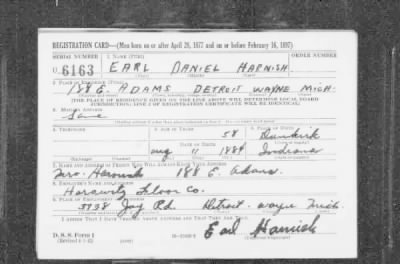 REGISTRATION CARD—(Men born on or after April 28, 1877 and on or before February 16, 1897)
SERIAL NUMBER 1. NAME (Print) ORDER NUMBER
U 6163 EARL DANIEL HARNISH
(First) (Middle) (Last)
2. PLACE OF RESIDENCE (Print)
188 E. ADAMS DETROIT WAYNE MICH.
[THE PLACE OF RESIDENCE GIVEN ON THE LINE ABOVE WILL DETERMINE LOCAL BOARD
JURISDICTION; LINE 2 OF REGISTRATION CERTIFICATE WILL BE IDENTICAL]
3. MAILING ADDRESS
Same
4. TELEPHONE 5. AGE IN YEARS 6. PLACE OF BIRTH
58 Dunkirk
DATE OF BIRTH
Aug 11 1884 Indiana
7. NAME AND ADDRESS OF PERSON WHO WILL ALWAYS KNOW YOUR ADDRESS
Mrs. 188 E. Adams
8. EMPLOYER'S NAME AND ADDRESS
Co.
9. PLACE OF EMPLOYMENT OR BUSINESS
5938 Joy Rd. Detroit Wayne Mich.
I AFFIRM THAT I HAVE VERIFIED ABOVE ANSWERS AND THAT THEY ARE TRUE.
D. S. S. Form 1
Earl Harnish